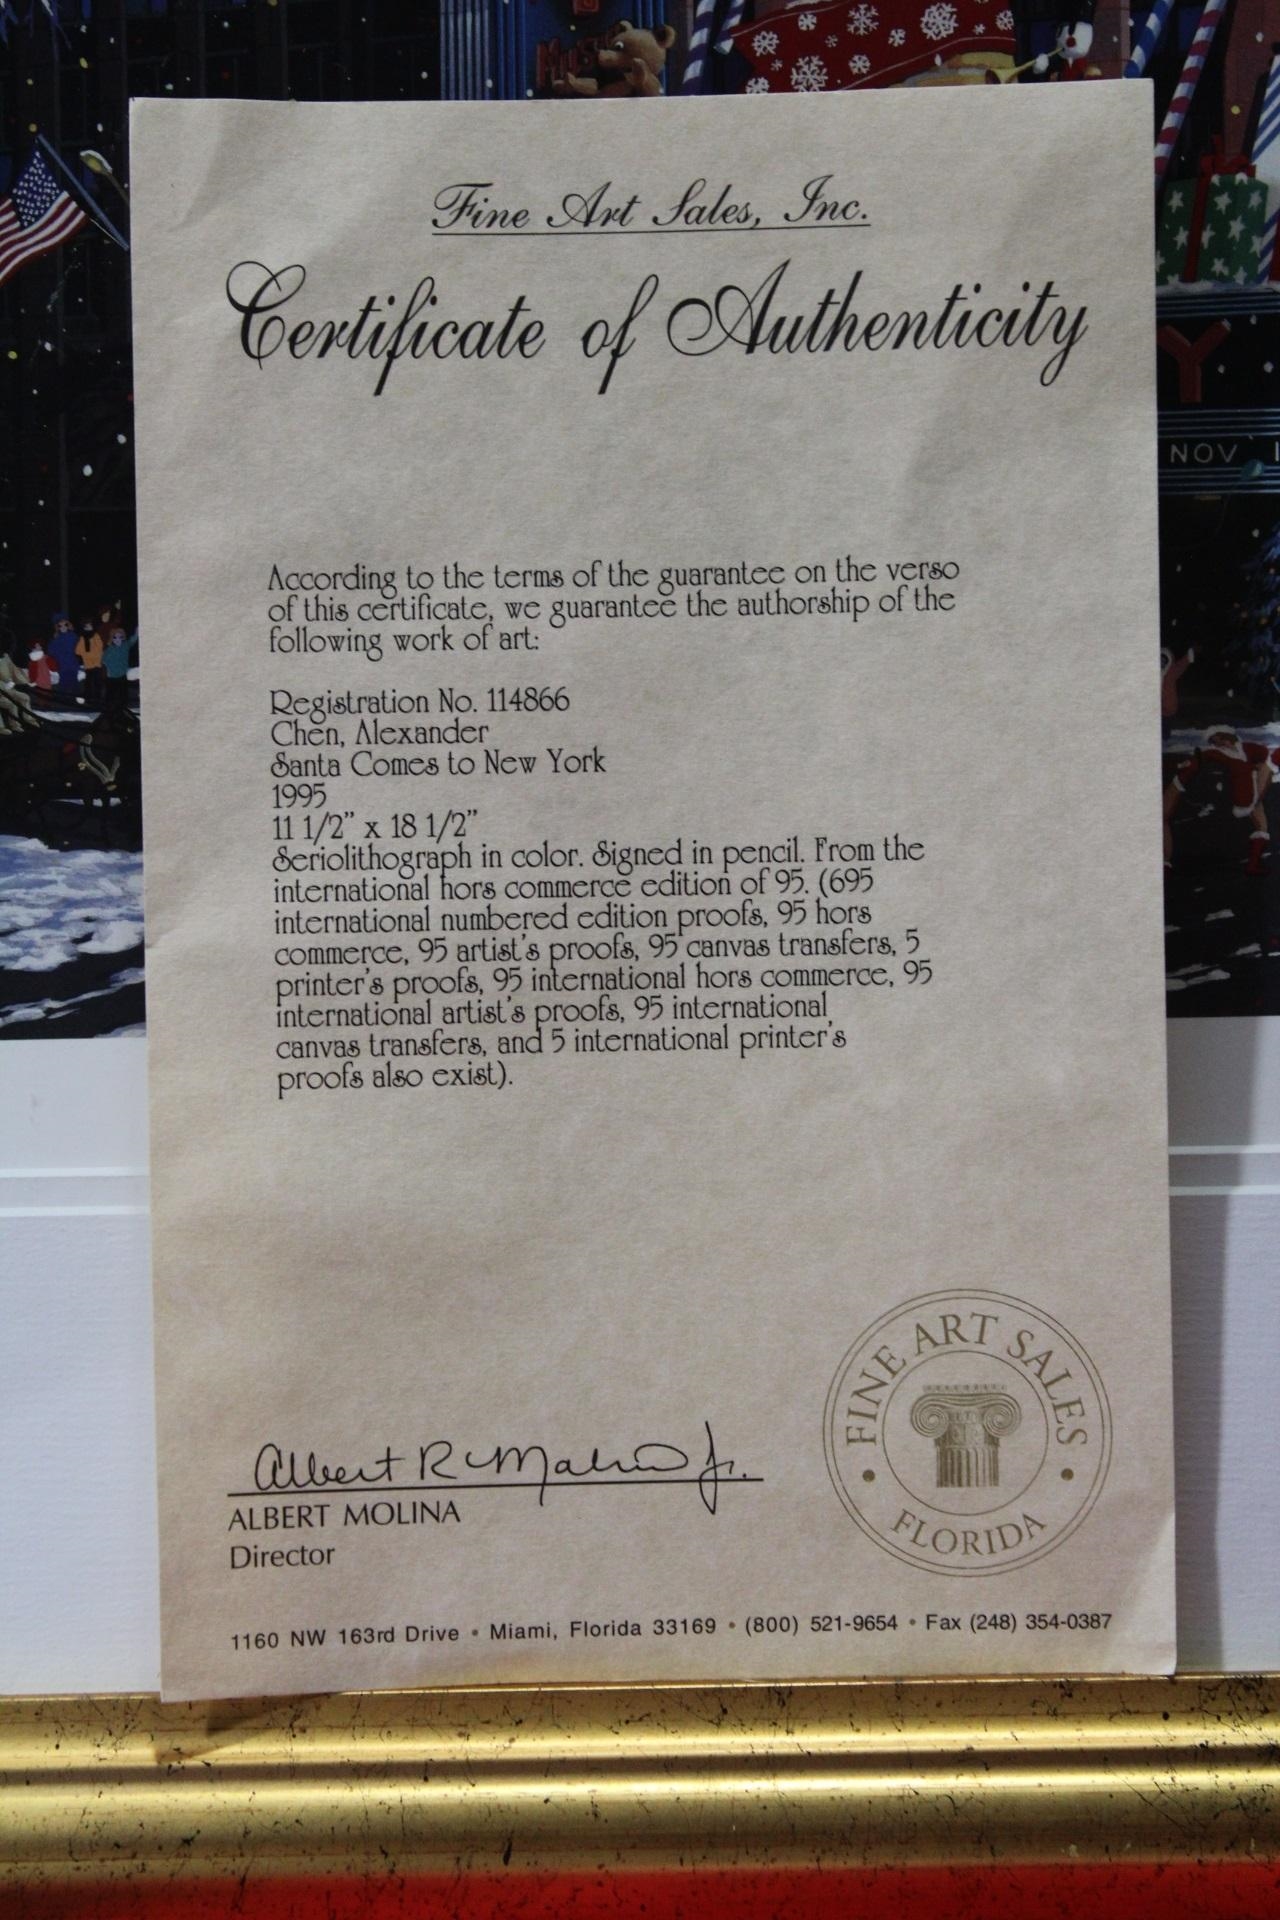 MUSIC
Y
NOV 1
Fine Art Sales, Inc.
Certificate of Authenticity
According to the terms of the guarantee on the verso
of this certificate, we guarantee the authorship of the
following work of art:
Registration No. 114866
Chen, Alexander
Santa Comes to New York
1995
11 1/2” x 18 1/2”
Seriolithograph in color. Signed in pencil. From the
international hors commerce edition of 95. (695
international numbered edition proofs, 95 hors
commerce, 95 artist's proofs, 95 canvas transfers, 5
printer's proofs, 95 international hors commerce, 95
international artist's proofs, 95 international
canvas transfers, and 5 international printer's
proofs also exist).
Albert R Molina Jr.
ALBERT MOLINA
Director
FINE ART SALES
• FLORIDA •
1160 NW 163rd Drive • Miami, Florida 33169 • (800) 521-9654 • Fax (248) 354-0387